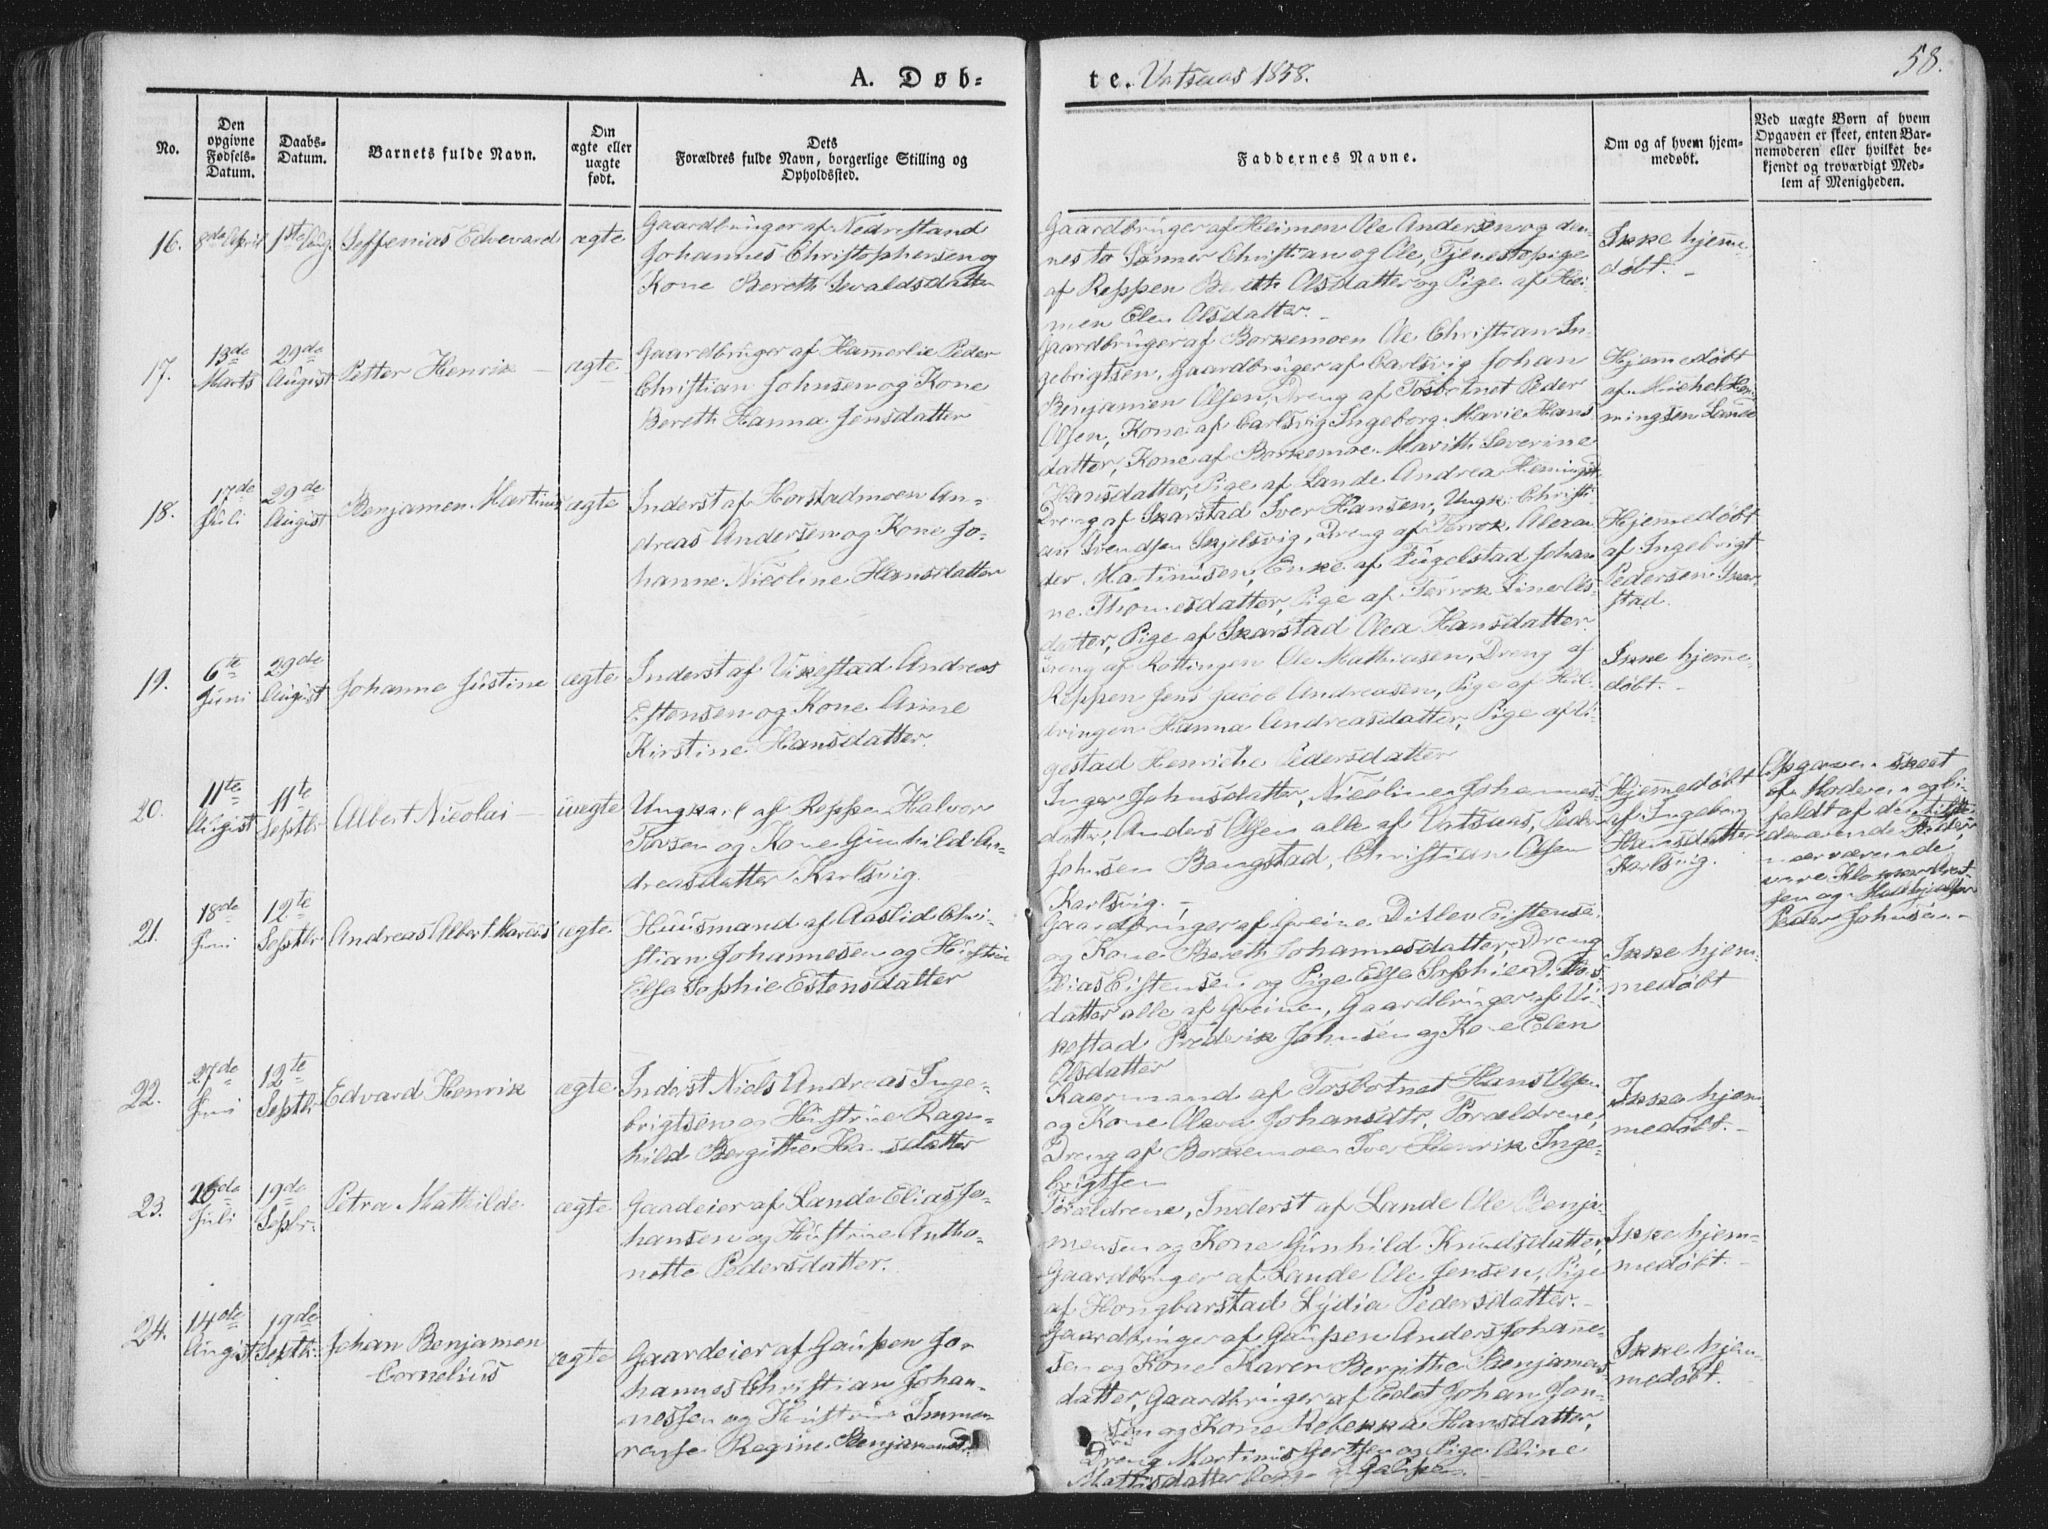 58.
A. Døb-
te. Vatsaas 1858.
No.
Den opgivne Fødsels-Datum.
Daabs-Datum.
Barnets fulde Navn.
Om ægte eller uægte født.
Dets
Forældres fulde Navn, borgerlige Stilling og
Opholdssted.
Faddernes Navne.
Om og af hvem hjem-
medøbt.
Ved uægte Børn af hvem
Opgaven er skeet, enten Bar-
nemoderen eller hvilket be-
kjendt og troværdigt Med-
lem af Menigheden.
16.
April
1ste Aug.
Seffenias Edevard
ægte
Gaardbruger af Nedrestand
Johannes Christophersen og
Kone Bereth Sevaldsdatter
Gaardbruger af Heimen Ole Andersen og den-
nes to Sønner Christian og Ole, Tjenestepige
af Reppen Bereth Olsdatter og Pige af Hei-
men Elen Olsdatter.
Ikke hjemme-
døbt.
17.
13de
Marts
29de
August
Petter Henrik
ægte
Gaardbruger af Hamerlie Peder
Christian Johnsen og Kone
Bereth Hanna Jensdatter
Gaardbruger af Borkemoen Ole Christian In-
gebrigtsen, Gaardbruger af Carlsvig Johan
Benjamen Olsen, Dreng af Tosbotnet Peder
Olsen, Kone af Carlsvig Ingeborg Marie Hans-
datter, Kone af Borkemoe Marith Severine
Hansdatter, Pige af Lande Andrea Hemingsd.
Hjemmedøbt
af Michel Hen-
ningsen Lande
18.
17de
Juli
29de
August
Benjamen Martinus
ægte
Inderst af Horstadmoen An-
dreas Andersen og Kone Jo-
hanne Nicoline Hansdatter
Dreng af Skarstad Iver Hansen, Ungk. Christi-
an Svendsen Skjelsvig, Dreng af Terrok Alexan
der Martinusen, Enke af Fugelstad Johan
ne Thomesdatter, Pige af Terrok
datter, Pige af Skarstad Olea Hansdatter.
Hjemmedøbt
af Ingebrigt
Pedersen Skar-
stad.
19.
6te
Juni
29de
August
Johanne Justine
ægte
Inderst af Vikestad Andreas
Estensen og Kone Anne
Kirstine Hansdatter.
Dreng af Røttingen Ole Mathiasen, Dreng af
Reppen Jens Jacob Andreasen, Pige af Hil-
bringen Hanna Andreasdatter, Pige af Vi-
gestad Henriche Pedersdatter
Ikke hjemme-
døbt.
20.
11te
August
11te
Septbr
Albert Nicolai
uægte
Ungkarl af Reppen Halvor
og Kone Gunhild An-
dreasdatter Karlsvig.
Inger Johnsdatter, Nicoline Johannes-
datter, Anders Olsen alle af Vatsaas, Peder
Johnsen Bangstad, Christian Olsen
Karlsvig.
Hjemmedøbt
af Ingeborg
Hansdatter
Karlsvig.
Opgaven skeet
af Moderen og bi-
faldt af den
Fader,
nærværende
vare
og
Peder Johnsen
21.
18de
Juni
12te
Septbr
Andreas Albert Mareus
ægte
Huusmand af Aaslid Chri-
stian Johannesen og Hustru
Else Sophie Estensdatter
Gaardbruger af Greine Ditlev Eistense.
og Kone Bereth Johannesdatter, Dreng
Elias Eistensen og Pige Else Sophie
datter alle af Greinen, Gaardbruger af Vi-
kestad Frederik Johnsen og Kone Elen
Olsdatter
Ikke hjem-
medøbt
22.
27de
Juni
12te
Septbr
Edvard Henrik
ægte
Inderst Niels Andreas Inge-
brigtsen og Hustrue Ragn-
hild Bergitthe Hansdatter
Kaarmand af Tosbotnet Hans Olsen
og Kone Oleva Johansdtr, Forældrene,
Dreng af Borkemoen Iver Henrik Inge-
brigtsen
Ikke hjem-
medøbt.
23.
26de
Juli
19de
Septbr.
Petra Mathilde
ægte
Gaardeier af Lande Elias Jo-
hansen og Hustrue Antho-
nette Pedersdatter.
Forældrene, Inderst af Lande Ole Benja-
mensen og Kone Gunhild Knudsdatter,
Gaardbruger af Lande Ole Jensen, Pige
af Hongbarstad Lydia Pedersdatter.
Ikke hjem-
medøbt.
24.
14de
August
19de
Septbr.
Johan Benjamen
Cornelius
ægte
Gaardeier af Gaupen Jo-
hannes Christian Johan-
nessen og Hustrue Immer-
rense Regine Benjamensd.
Gaardbruger af Gaupen Anders Johanne-
sen og Kone Karen Bergitthe Benjamens-
datter, Gaardbruger af Eidet Johan Jon-
sen og Kone Rebekka Hansdatter,
Dreng Martinus Gertsen og Pige Oline
Mathisdatter begge af Gaupen.
Ikke hjem-
medøbt.